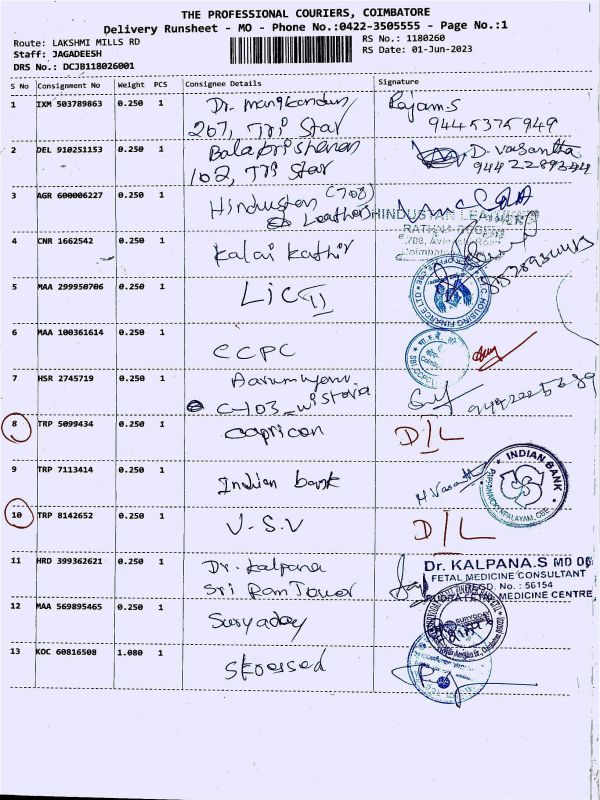 THE PROFESSIONAL COURIERS, COIMBATORE
Delivery Runsheet - MO - Phone No.:0422-3505555 - Page No.:1
Route: LAKSHMI MILLS RD
Staff: JAGADEESH
DRS No.: DCJB118026001
RS No.: 1180260
RS Date: 01-Jun-2023
S No Consignment No Weight PCS Consignee Details Signature
1 IXM 503789863 0.250 1 Dr. 
207, Tri Star
Rajam.S
9445375949
2 DEL 910251153 0.250 1 Balakrishanan
102, Tri Star
D. Vasantha
3 AGR 600006227 0.250 1 Hindustan (708)
Leathers
HINDUSTAN LEATHERS
4 CNR 1662542 0.250 1 Kalai Kathir
5 MAA 299950706 0.250 1 LIC II
LIC HOUSING FINANCE LTD
6 MAA 100361614 0.250 1 CCPC
7 HSR 2745719 0.250 1
C-103
8 TRP 5099434 0.250 1 Capricon D/L
9 TRP 7113414 0.250 1 Indian bank
INDIAN BANK
10 TRP 8142652 0.250 1 U.S.V D/L
11 HRD 399362621 0.250 1 Dr. Kalpana
Sri Ram Tower
Dr. KALPANA.S MD OG
FETAL MEDICINE CONSULTANT
REGD. No.: 56154
RUDRA FETAL MEDICINE CENTRE
12 MAA 569895465 0.250 1 Suryaday
13 KOC 60816508 1.080 1